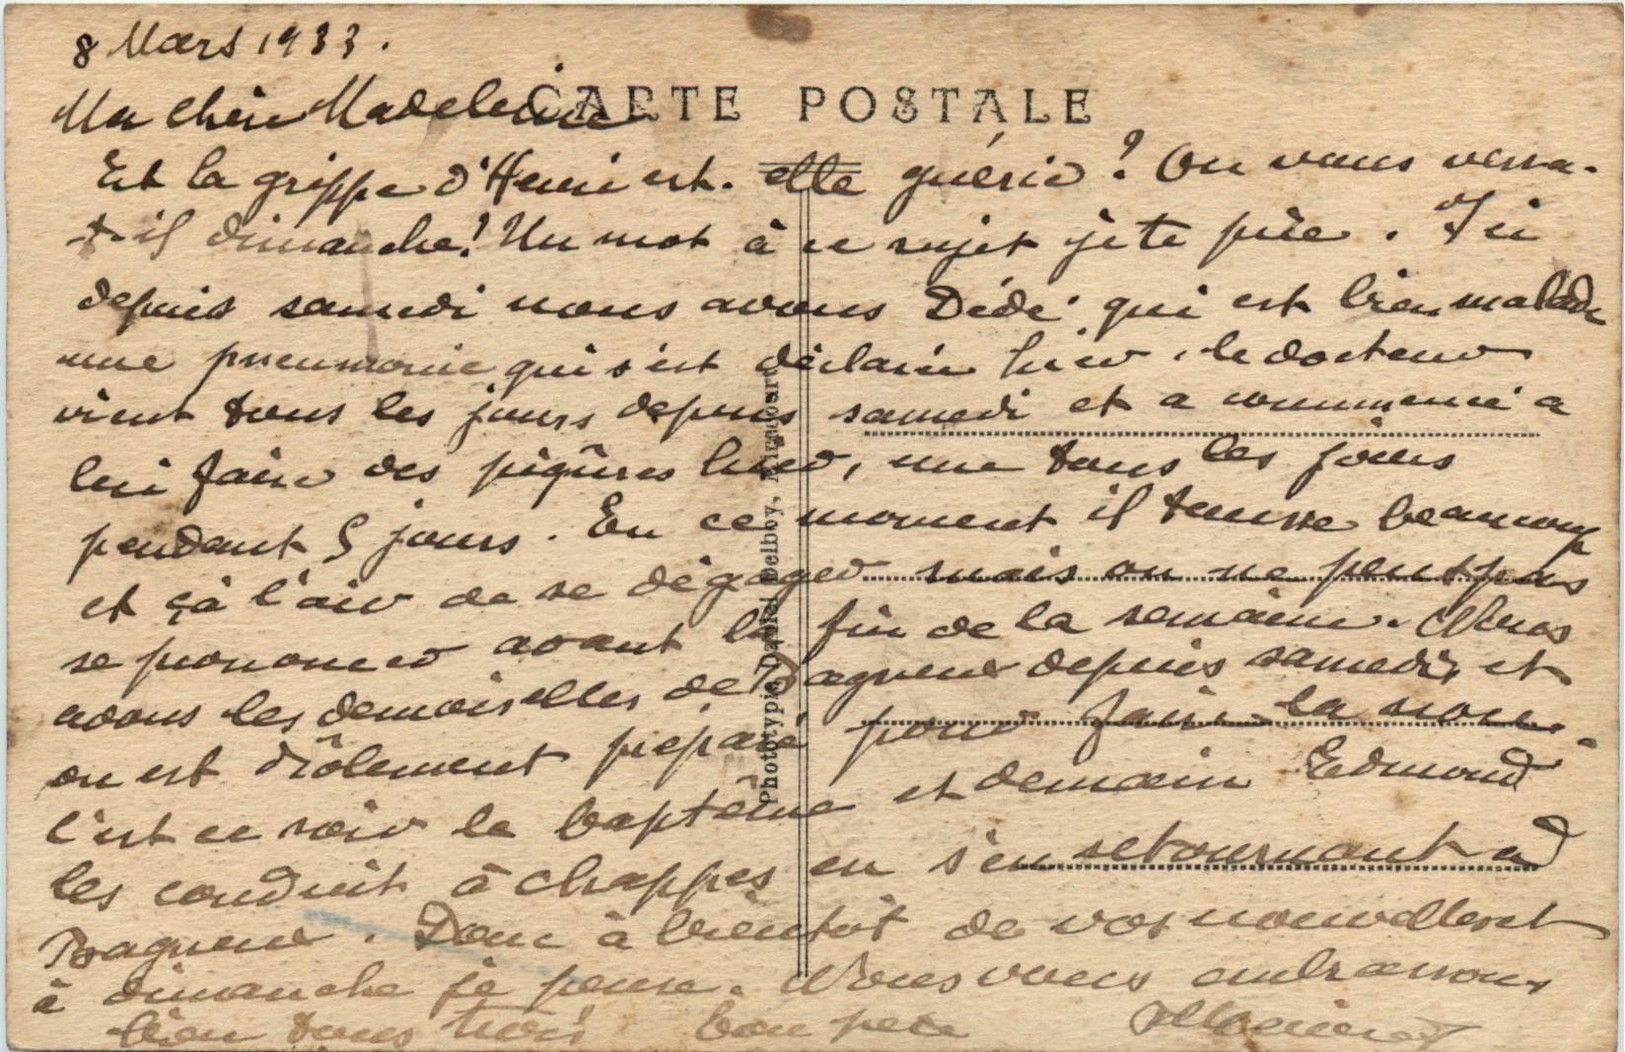 8 Mars 1933.
CARTE POSTALE
Ma chère Madeleine
Et la grippe d'Henri est-elle guérie? On vous verra-
t-il dimanche! Un mot à ce sujet je te prie. Ici
depuis samedi nous avons Dédé qui est bien malade
une pneumonie qui s'est déclarée hier, le docteur
vient tous les jours depuis samedi et a commencé a
lui faire des piqûres hier, une tous les jours
pendant 5 jours. En ce moment il tousse beaucoup
et çà l'air de se dégager mais on ne peut pas
se prononcer avant la fin de la semaine. Nous
avons les demoiselles de Bagneux depuis samedi, et
on est drôlement préparé pour faire la noce.
C'est ce soir le baptême et demain Edmond
les conduit à Chappes en s'en retournant à
Bagneux. Donc à bientôt de vos nouvelles et
à dimanche je pense. Nous vous embrassons
bien tous trois
Phototypie Daniel Delboy, Mirecourt